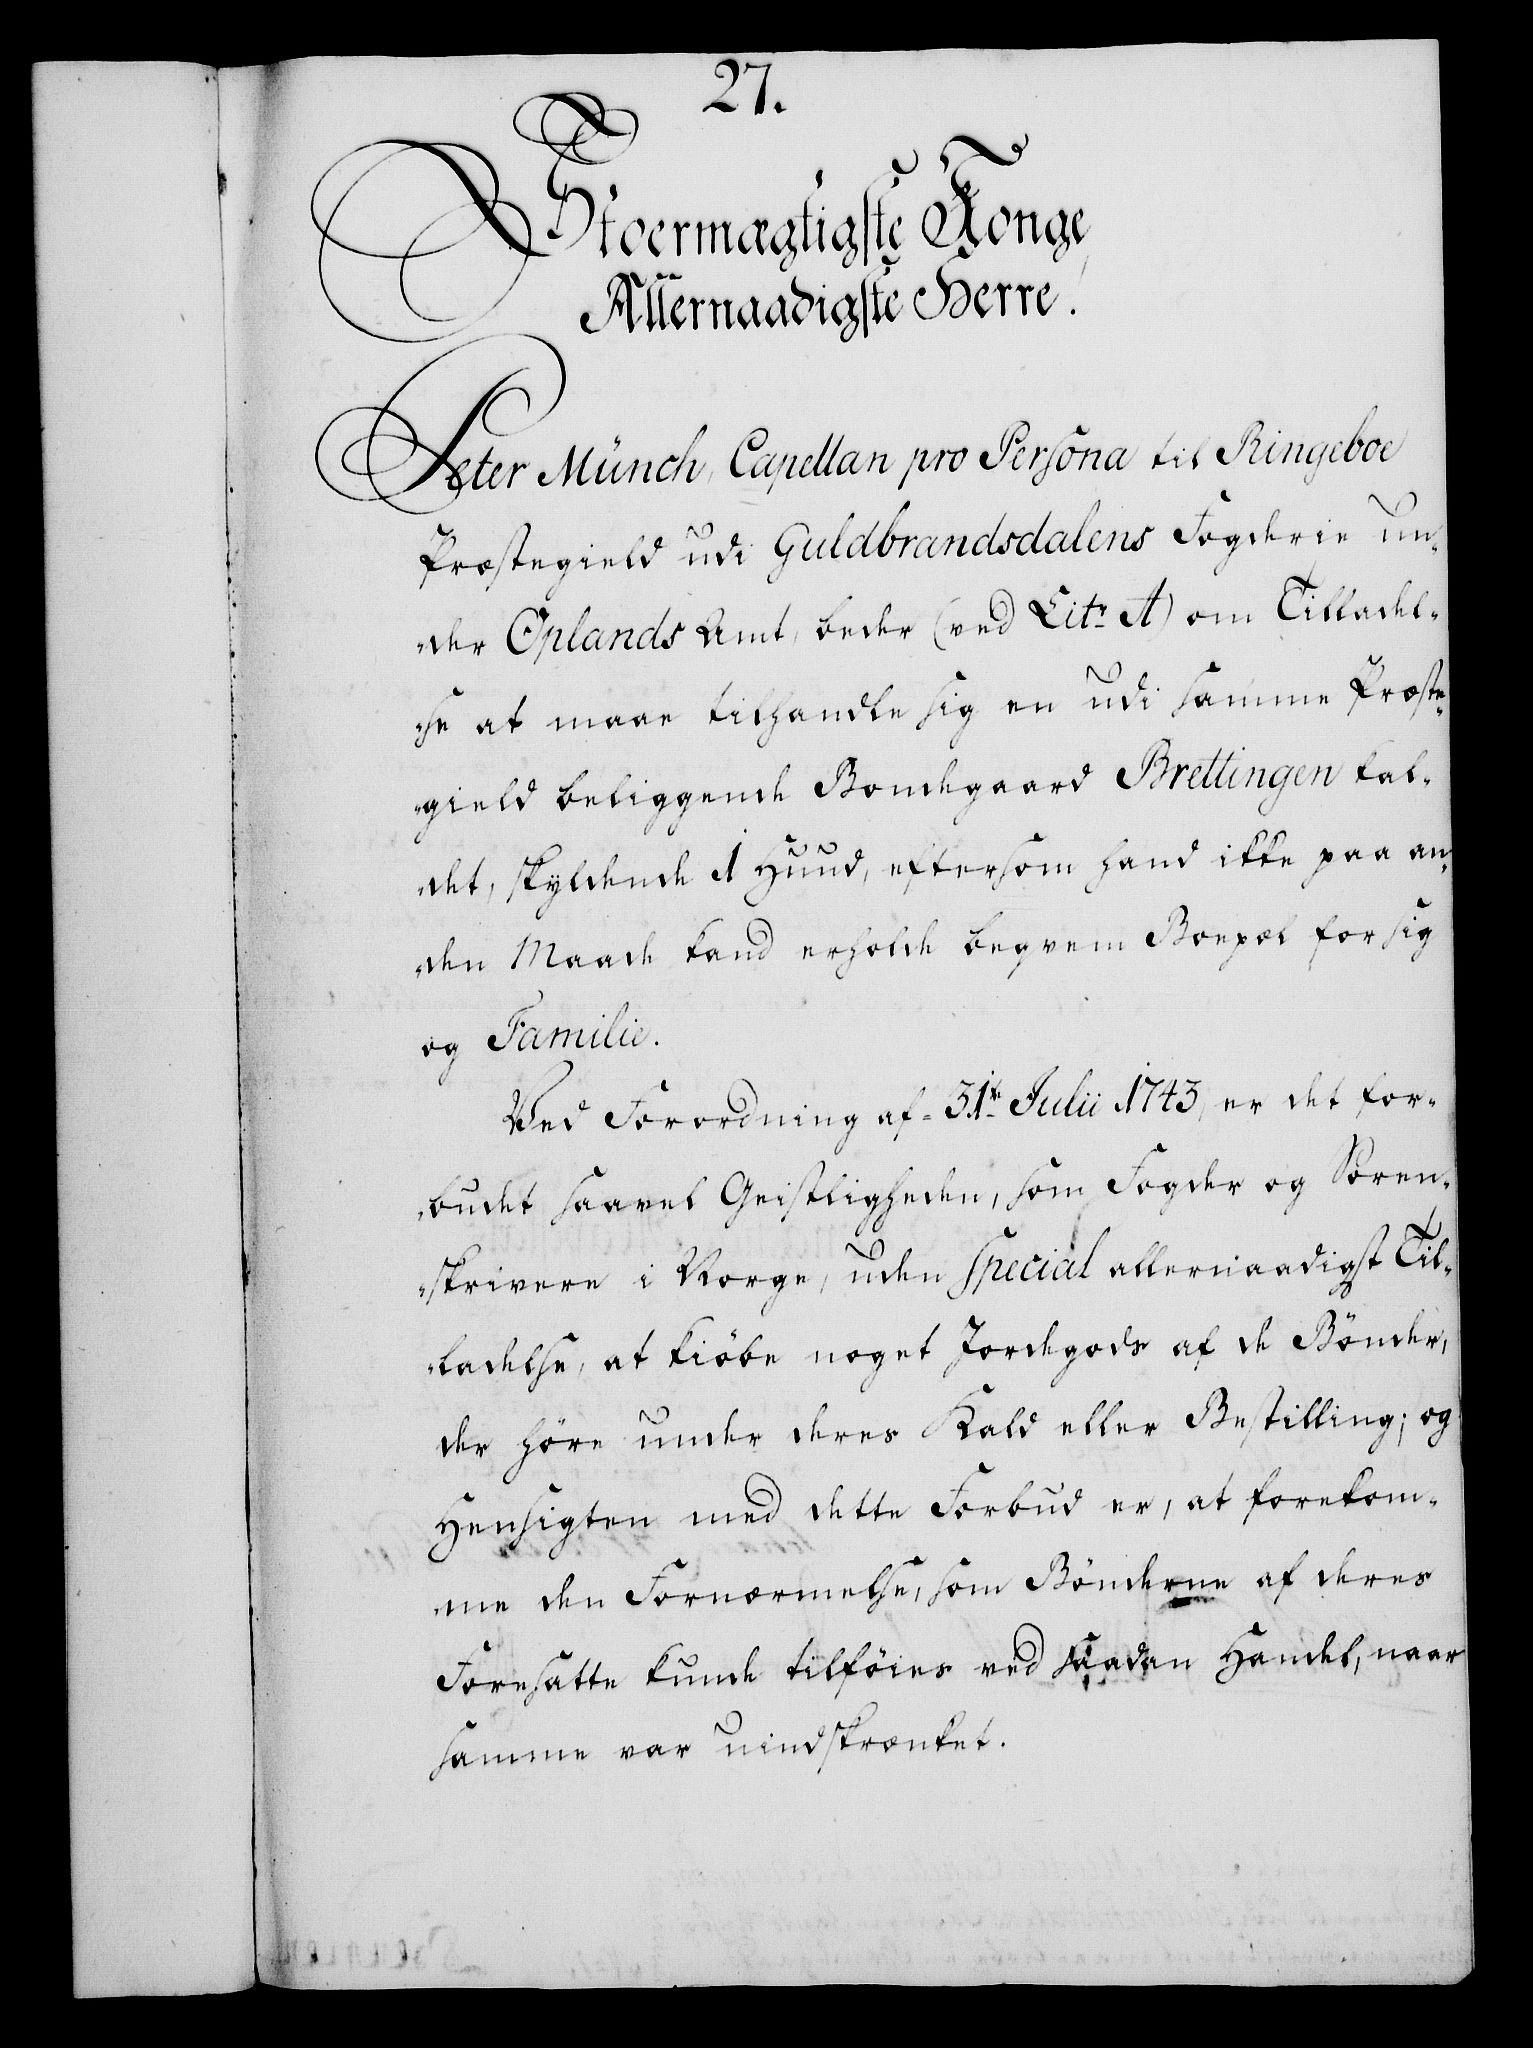 27.
Stoermægtigste Konge,
Allernaadigste Herre!
Peter Münch, Capellan pro Persona til Ringeboe
Præstegield udi Guldbrandsdalens Fogderie un-
der Oplands Amt, beder (ved Litr. A) om Tilladel-
se at maae tilhandle sig en udi samme Præste-
gield beliggende Bondegaard Brettingen kal-
det, skyldende 1 Huud, eftersom hand ikke paa an-
den Maade kand erholde beqvem Boepæl for sig
og Familie.
Ved Forordning af 31te Julii 1743, er det for-
budet saavel Geistligheden, som Fogder og Soren-
skrivere i Norge, uden special allernaadigst Til-
ladelse, at kiöbe noget Jordegods af de Bönder,
der höre under deres Kald eller Bestilling; og
Hensigten med dette Forbud er, at forekom-
me den Fornærmelse, som Bönderne af deres
Foresatte kunde tilföies ved saadan Handel, naar
samme var uindskrænket.